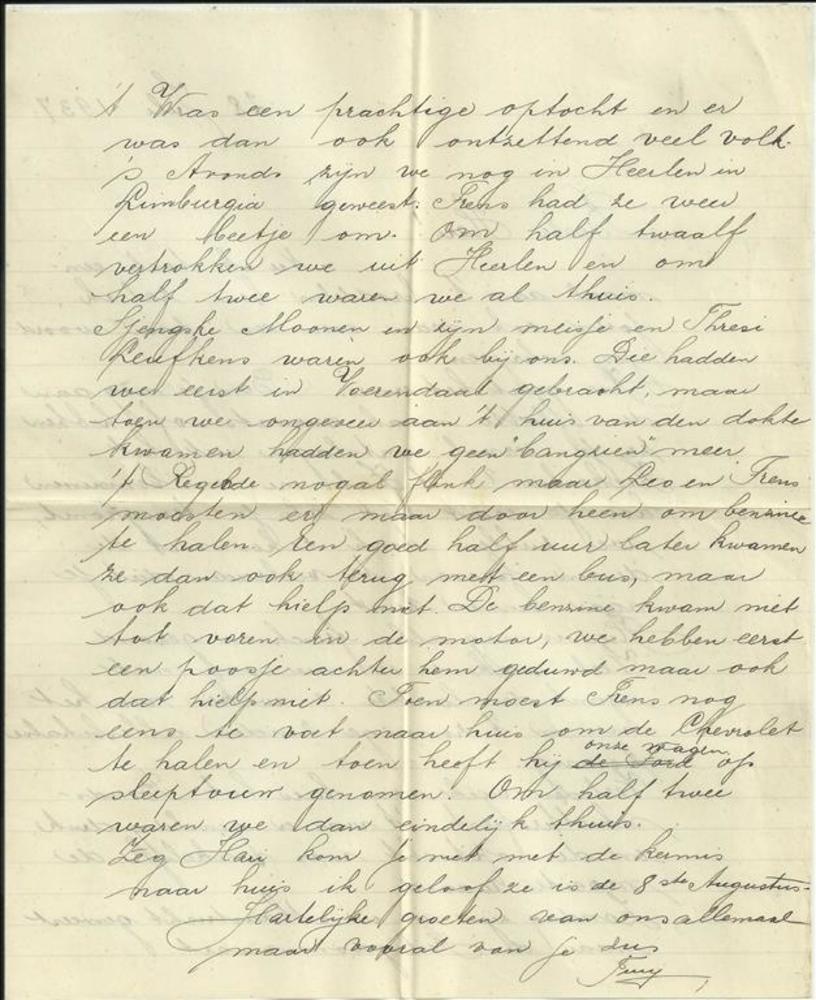 't Was een prachtige optocht en er
was dan ook ontzettend veel volk.
's Avonds zijn we nog in Heerlen in
Limburgia geweest. Frens had ze weer
een beetje om. Om half twaalf
vertrokken we uit Heerlen en om
half twee waren we al thuis.
Sjengske Moonen en zijn meisje en Thresi
Leufkens waren ook bij ons. Die hadden
we eerst in Voerendaal gebracht, maar
toen we ongeveer aan 't huis van den dokte
kwamen hadden we geen "bangrien" meer
't Regende nogal flink maar Leo en Frens
moesten er maar door heen om benzine
te halen. Een goed half uur later kwamen
ze dan ook terug met een bus, maar
ook dat hielp niet. De benzine kwam niet
tot voren in de motor, we hebben eerst
een poosje achter hem geduwd maar ook
dat hielp niet. Toen moest Frens nog
eens te voet naar huis om de Chevrolet
te halen en toen heeft hij de Ford onze wagen op
sleeptouw genomen. Om half twee
waren we dan eindelijk thuis.
Zeg Hari kom je niet met de kermis
naar huis ik geloof ze is de 8ste Augustus.
Hartelijke groeten van ons allemaal
maar vooral van je zus